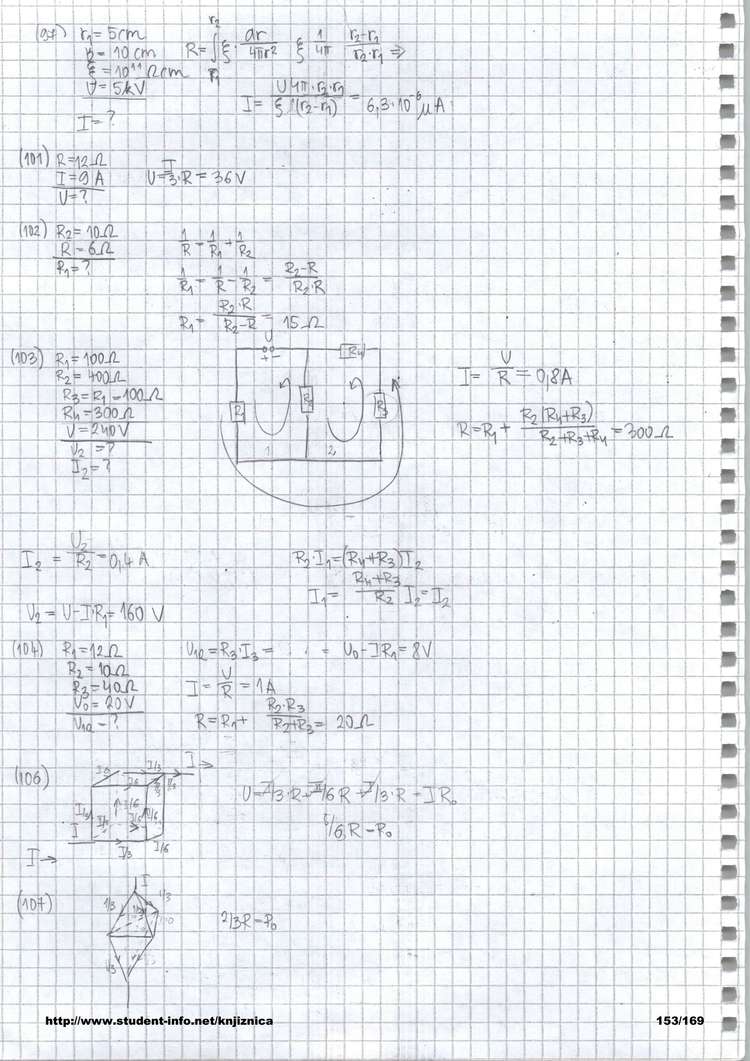 (97) r₁ = 5cm
r₂ = 10 cm
ξ = 10¹¹ Ωcm
U = 5kV
I = ?
R = ∫ r₁ r₂ ξ · dr/4πr² ξ 1/4π r₂-r₁/r₂·r₁ ⇒
I = U4π·r₂·r₁/ξ(r₂-r₁) = 6,3·10⁻⁶ μA
(101) R = 12Ω
I = 9 A
U = ?
U = I/3·R = 36 V
(102) R₂ = 10Ω
R = 6Ω
R₁ = ?
1/R = 1/R₁ + 1/R₂
1/R₁ = 1/R - 1/R₂ = R₂-R/R₂·R
R₁ = R₂·R/R₂-R = 15Ω
(103) R₁ = 100Ω
R₂ = 400Ω
R₃ = R₁ = 100Ω
R₄ = 300Ω
U = 240V
U₂ = ?
I₂ = ?
U
+ -
R₄
R₁
R₂
R₃
1,
2,
I = U/R = 0,8A
R = R₁ + R₂(R₄+R₃)/R₂+R₃+R₄ = 300Ω
I₂ = U₂/R₂ = 0,4 A
U₂ = U-I·R₁ = 160 V
R₂·I₁ = (R₄+R₃)I₂
I₁ = R₄+R₃/R₂ I₂ = I₂
(104) R₁ = 12Ω
R₂ = 10Ω
R₃ = 40Ω
U₀ = 20V
U₁₂ = ?
U₁₂ = R₃·I₃ = . . = U₀-IR₁ = 8V
I = U/R = 1A
R = R₁ + R₂·R₃/R₂+R₃ = 20Ω
(106)
I/6 I/3 I →
I/6
I/3 I/6
I
I/3 I/6
I →
U = I/3·R + I/6R + I/3·R = IR₀
5/6 R = R₀
(107)
I
I/3 I/3
I/3
2/3R = R₀
http://www.student-info.net/knjiznica
153/169